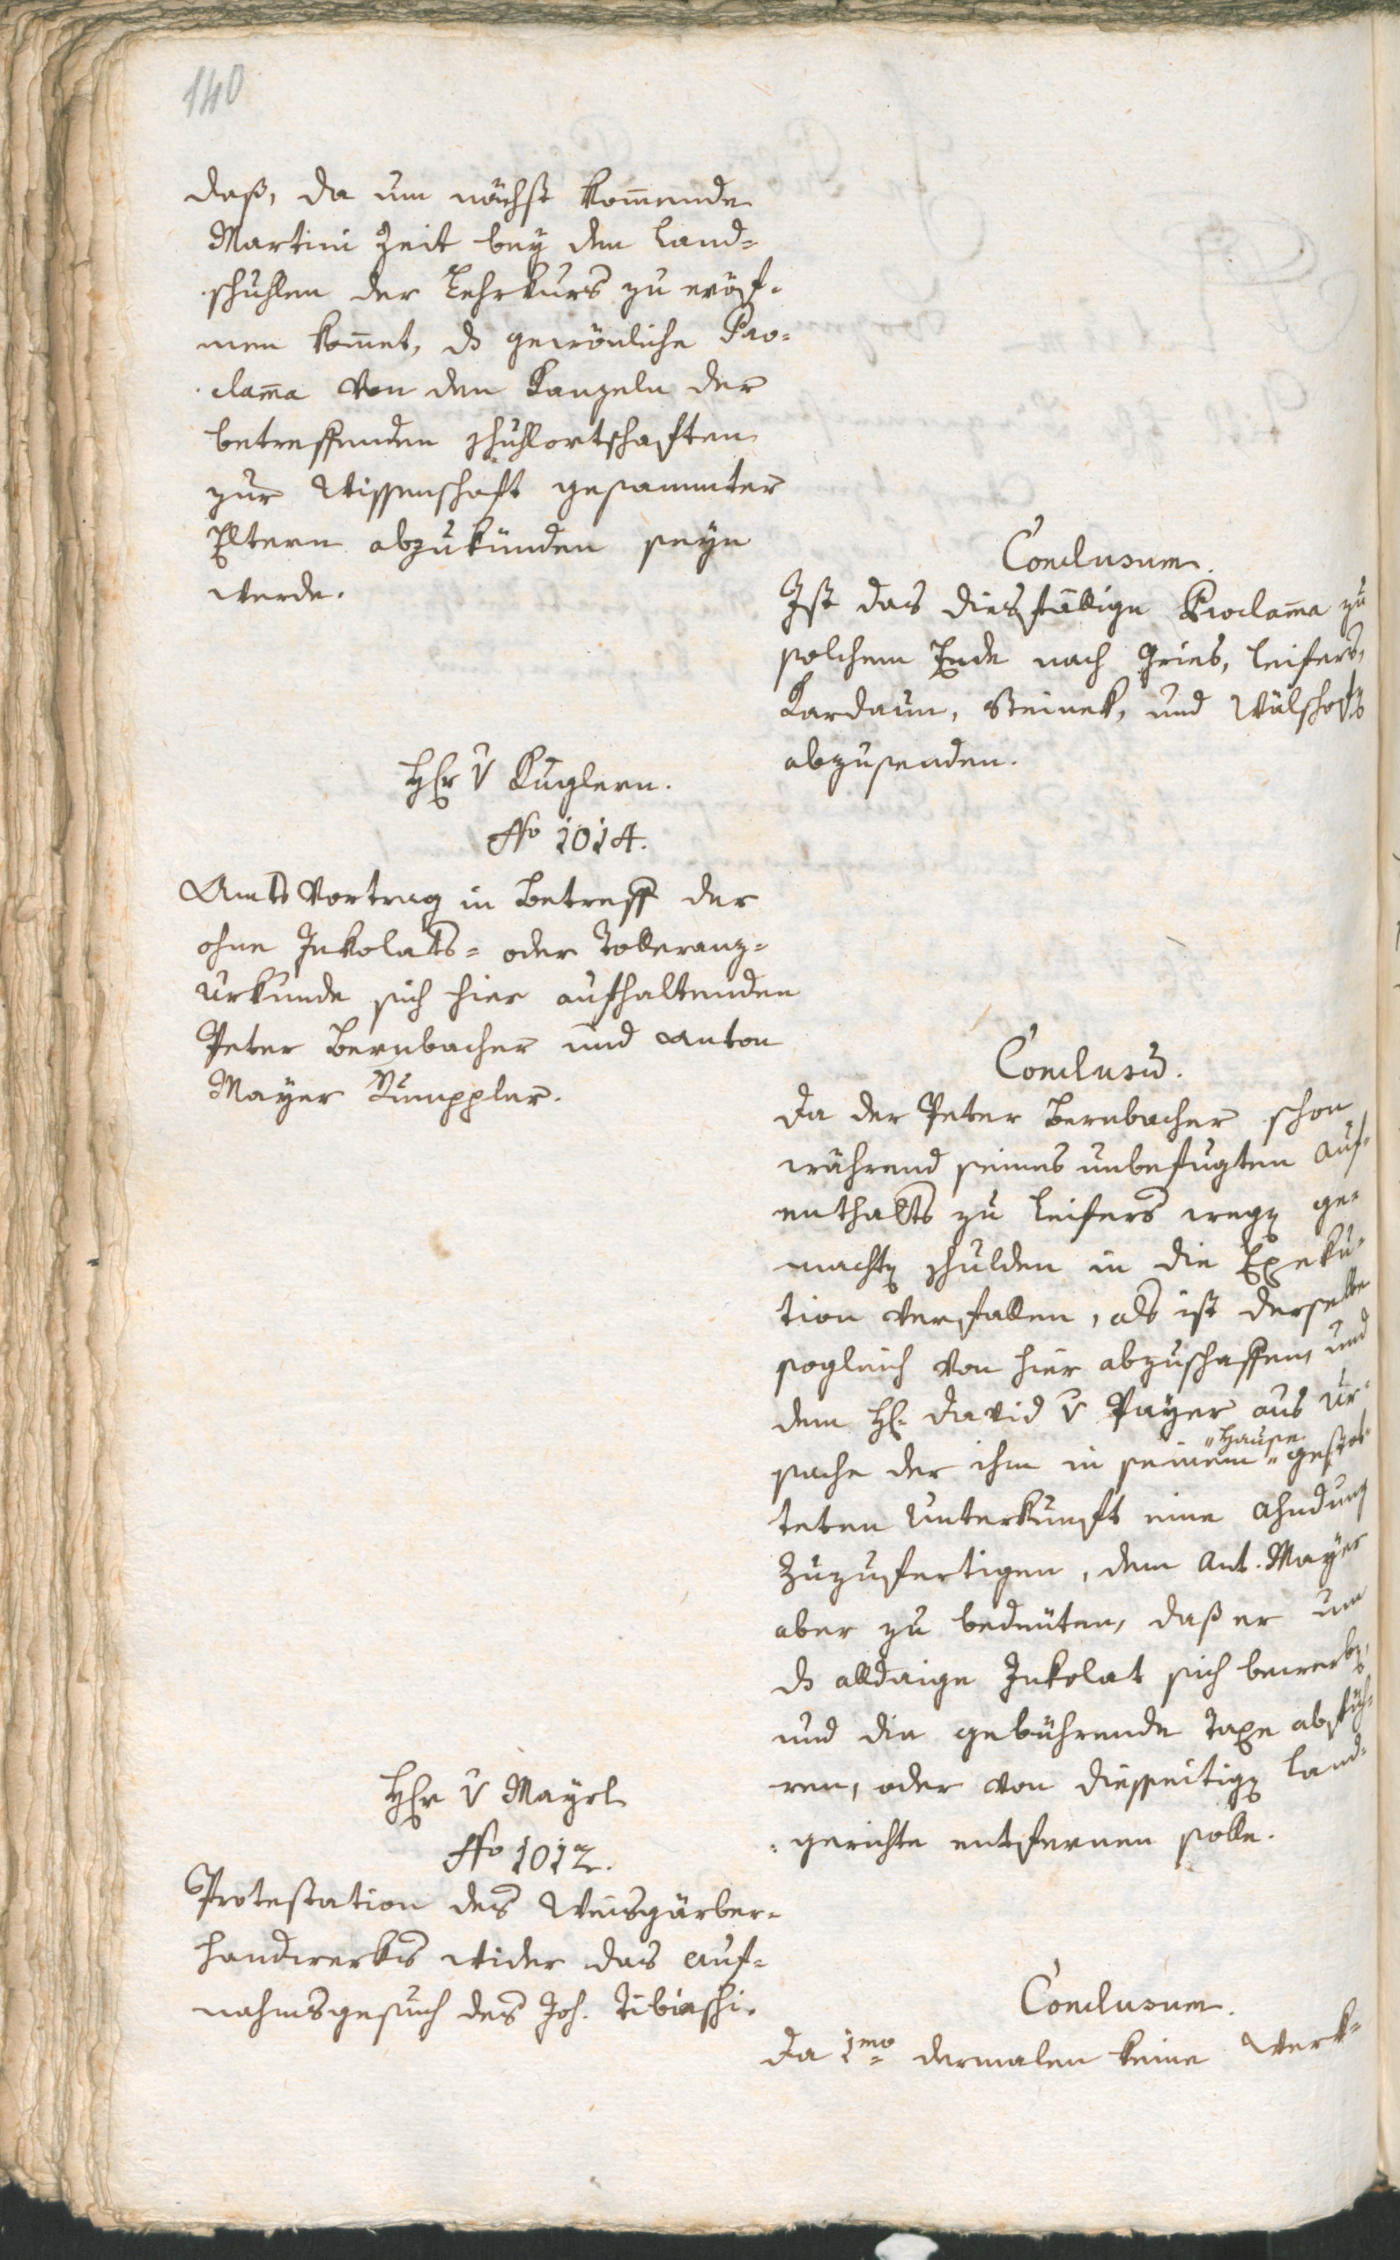 140
daß, da um nächst kom̄ende
Martini Zeit bey den Land-
schuhlen der Lehrkurs zu eröf-
nen kom̄et, ds gewönliche Pro-
clam̄a von den Kanzeln der
betreffenden Schuhlortschaften
zur Wissenschaft gesammter
Eltern abzukünden seyn
werde.
Conclusum.
Ist das diesfällige Proclam̄a zu
solchem Ende nach Gries, Leifers,
Kardaun, Steinek, und Wälschofen
abzusenden.
Hr v Kuglern.
No 1014.
Amts Vortrag in Betreff der
ohne Inkolats- oder Tolleranz-
Urkunde sich hier aufhaltenden
Peter Bernbacher und Anton
Mayer Rumppler.
Conclusū.
Da der Peter Bernbacher schon
während seines unbefugten Auf-
enthalts zu Leifers wegen ge-
machten Schulden in die Exeku-
tion verfallen, als ist derselbe
sogleich von hier abzuschaffen, und
dem H: David v Payer aus Ur-
sache der ihm in seinem "Hause" gestat-
teten Unterkunft eine Ahndung
zuzufertigen, dem Ant. Mayer
aber zu bedeuten, daß er um
ds alldaige Inkolat sich bewerben,
und die gebührende Taxe abfüh-
ren, oder von diesseitigen Land-
gerichte entfernen solle.
Hr v Mayrl
No 1012.
Protestation des Weisgärber-
handwerks wider das Auf-
nahmsgesuch des Joh. Tibiaschi.
Conclusum.
Da 1mo dermalen keine Werk-